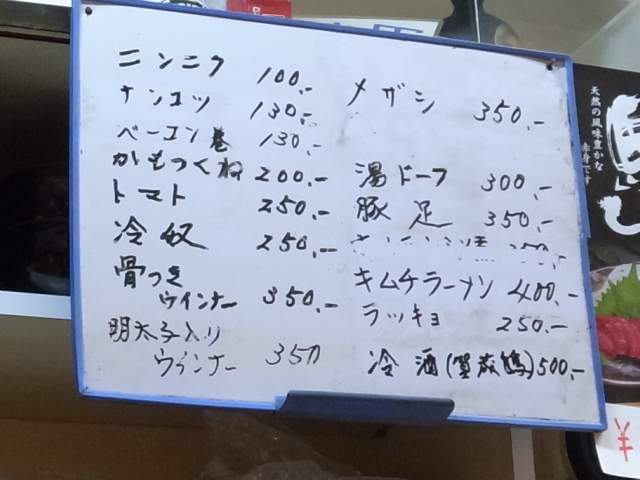 ニンニク 100.-
ナンコツ 130.-
ベーコン巻 130.-
かもつくね 200.-
トマト 250.-
冷奴 250.-
骨つき
ウインナー 350.-
明太子入り
ウインナー 350
メザシ 350.-
湯ドーフ 300.-
豚足 350.-
キムチラーメン 400.-
ラッキョ 250.-
冷酒(賀茂鶴)500.-
天然の風味豊かな
¥